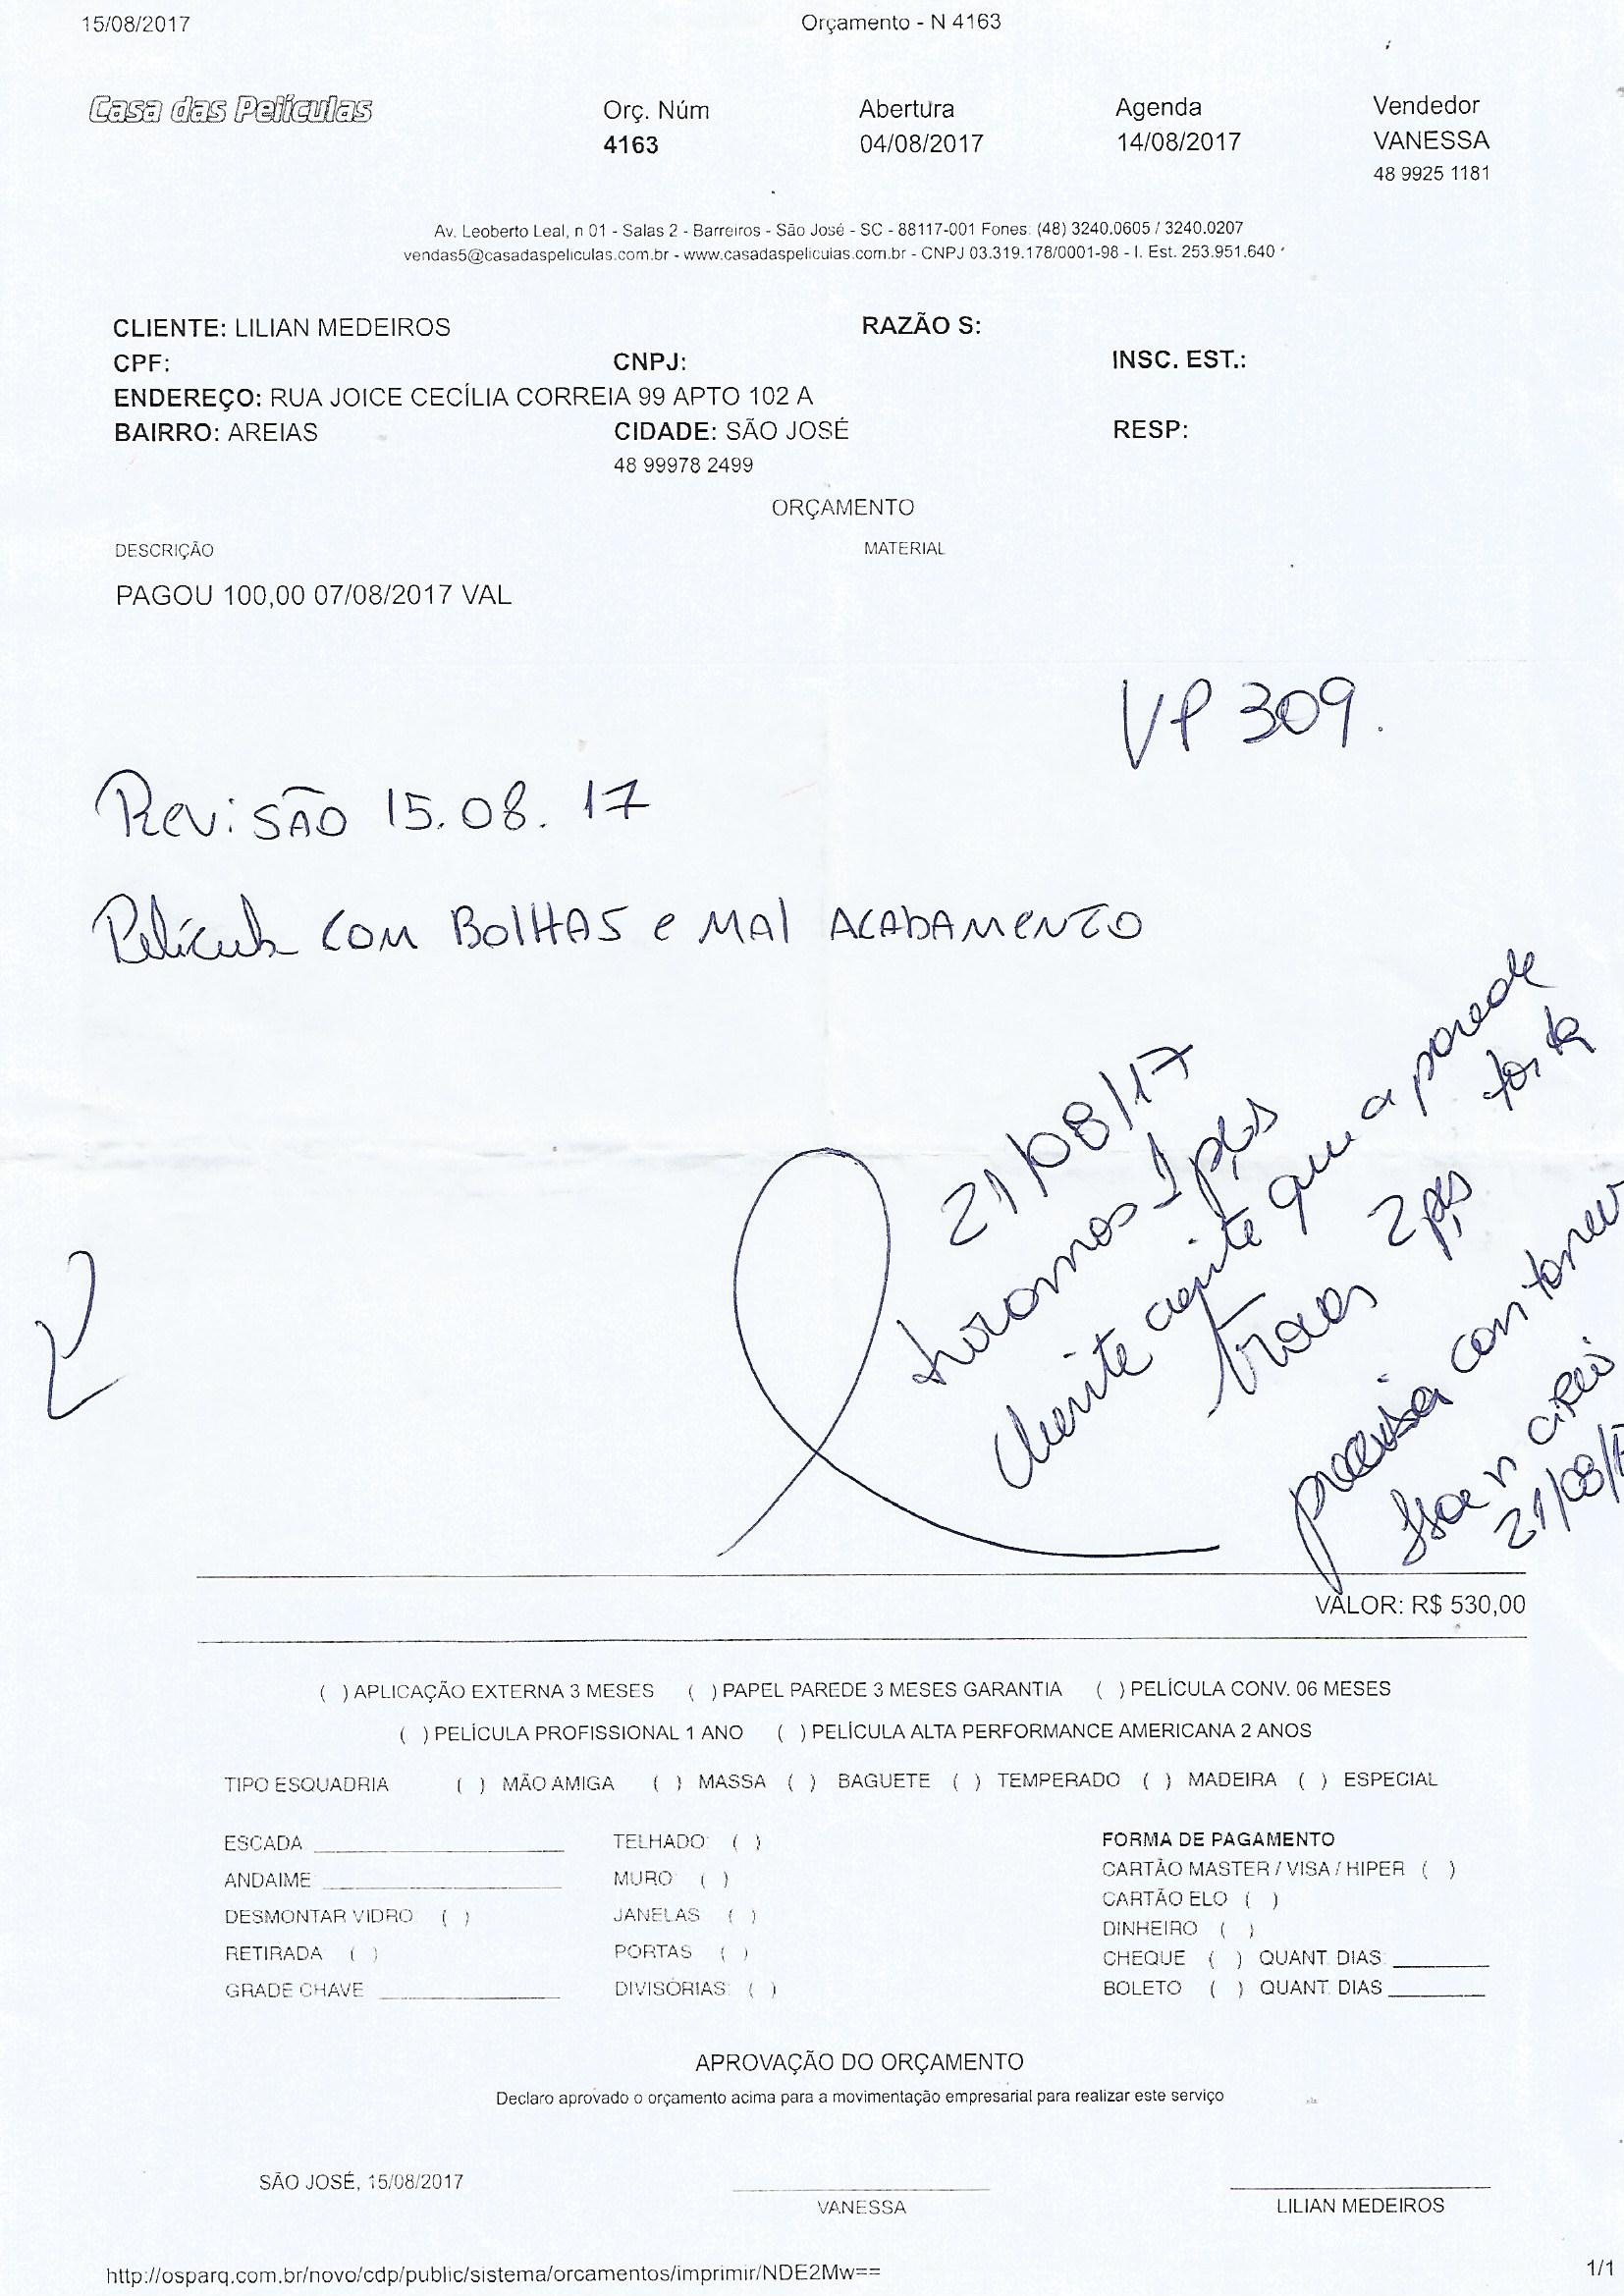 15/08/2017 Orçamento - N 4163
Casa das Películas Orç. Núm Abertura Agenda Vendedor
4163 04/08/2017 14/08/2017 VANESSA
48 9925 1181
Av. Leoberto Leal, n 01 - Salas 2 - Barreiros - São José - SC - 88117-001 Fones: (48) 3240.0605 / 3240.0207
vendas5@casadaspeliculas.com.br - www.casadaspeliculas.com.br - CNPJ 03.319.178/0001-98 - I. Est. 253.951.640
CLIENTE: LILIAN MEDEIROS RAZÃO S:
CPF: CNPJ: INSC. EST.:
ENDEREÇO: RUA JOICE CECÍLIA CORREIA 99 APTO 102 A
BAIRRO: AREIAS CIDADE: SÃO JOSÉ RESP:
48 99978 2499
ORÇAMENTO
DESCRIÇÃO MATERIAL
PAGOU 100,00 07/08/2017 VAL
VP 309.
Revisão 15.08.17
Película com BolHAS e MAl ACABAMENTO
21/08/17
tiramos 1 pçs
cliente que a parede
torta
2 pçs
precisa
21/08/17
VALOR: R$ 530,00
( ) APLICAÇÃO EXTERNA 3 MESES ( ) PAPEL PAREDE 3 MESES GARANTIA ( ) PELÍCULA CONV. 06 MESES
( ) PELÍCULA PROFISSIONAL 1 ANO ( ) PELÍCULA ALTA PERFORMANCE AMERICANA 2 ANOS
TIPO ESQUADRIA ( ) MÃO AMIGA ( ) MASSA ( ) BAGUETE ( ) TEMPERADO ( ) MADEIRA ( ) ESPECIAL
ESCADA TELHADO: ( ) FORMA DE PAGAMENTO
CARTÃO MASTER / VISA / HIPER ( )
ANDAIME MURO: ( )
CARTÃO ELO ( )
DESMONTAR VIDRO ( ) JANELAS ( )
DINHEIRO ( )
RETIRADA ( ) PORTAS ( )
CHEQUE ( ) QUANT. DIAS:
GRADE CHAVE DIVISÓRIAS: ( ) BOLETO ( ) QUANT. DIAS
APROVAÇÃO DO ORÇAMENTO
Declaro aprovado o orçamento acima para a movimentação empresarial para realizar este serviço
SÃO JOSÉ, 15/08/2017
VANESSA LILIAN MEDEIROS
http://osparq.com.br/novo/cdp/public/sistema/orcamentos/imprimir/NDE2Mw== 1/1